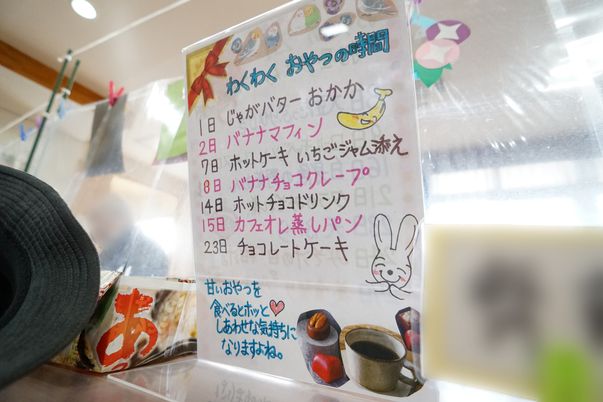 わくわく おやつの時間
1日 じゃがバター おかか
2日 バナナマフィン
7日 ホットケーキ いちごジャム添え
8日 バナナチョコクレープ
14日 ホットチョコドリンク
15日 カフェオレ蒸しパン
23日 チョコレートケーキ
甘いおやつを
食べるとホッと
しあわせな気持ちに
なりますよね。
あ